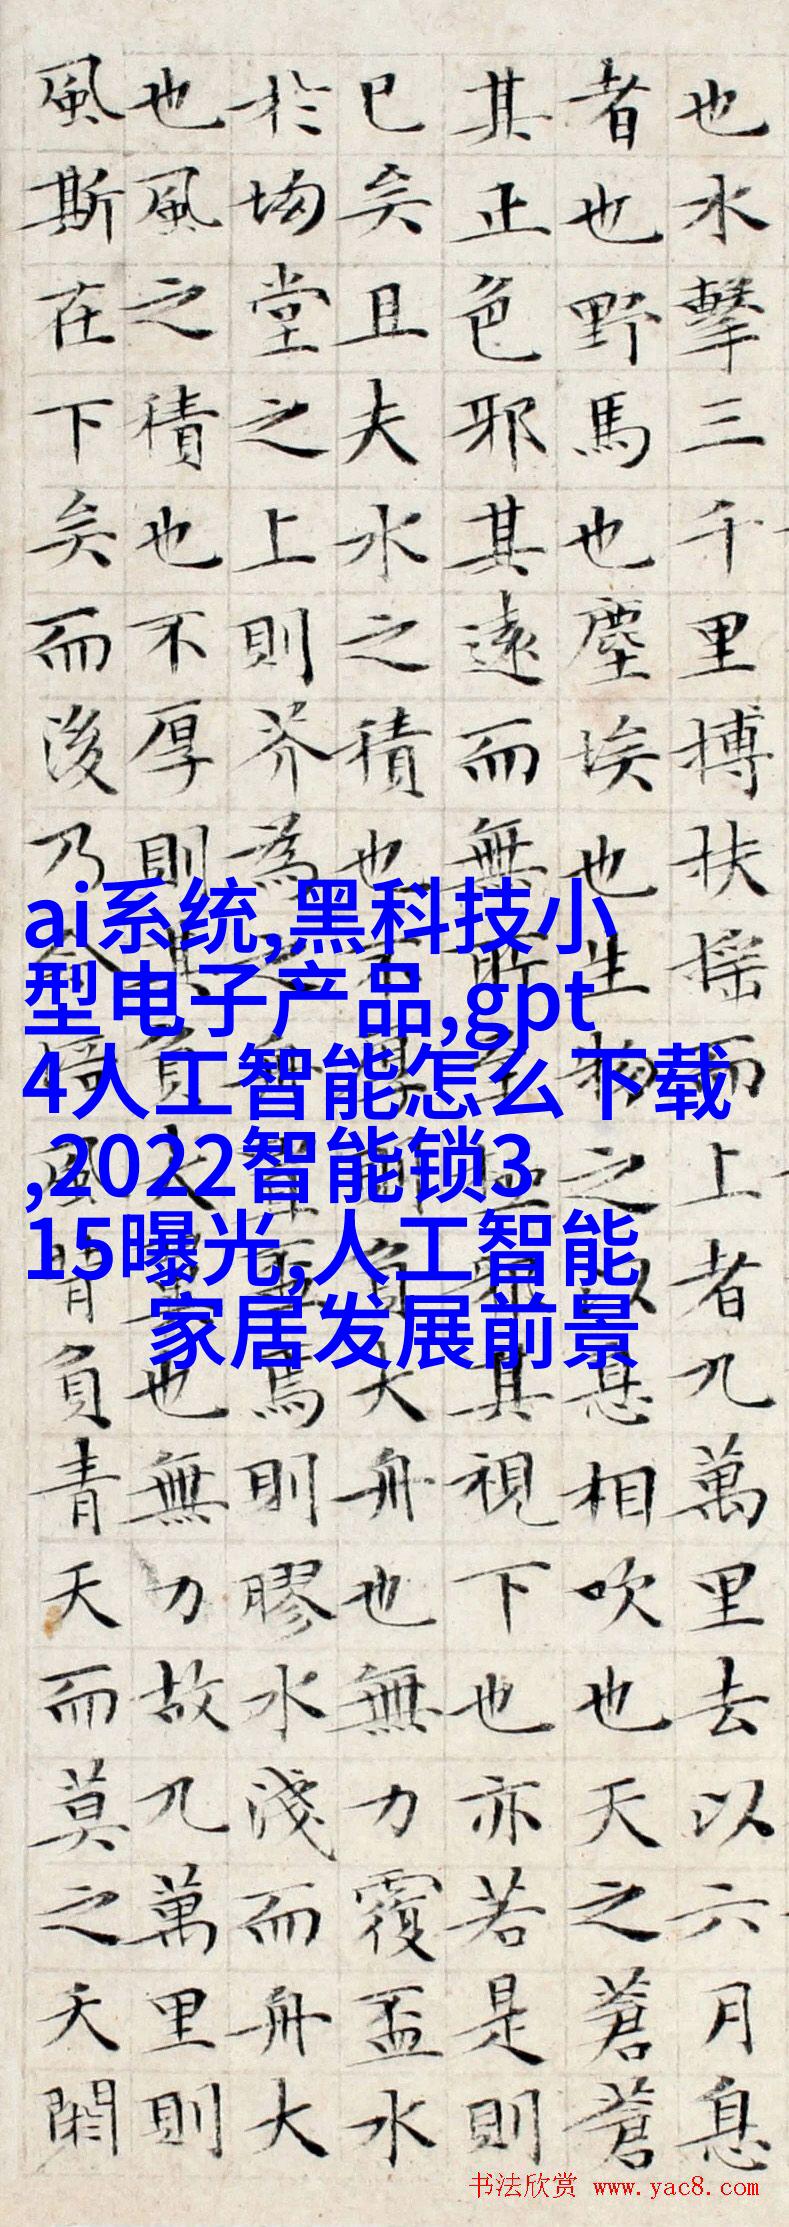 也水擊三千里搏扶搖而上者九萬里去以六月息
者也野馬也塵埃也生物之以息相吹也天之蒼蒼
其正色邪其遠而無所至極邪其視下也亦若是則
已矣且夫水之積也不厚則負大舟也無力覆盃水
於坳堂之上則芥為之舟置盃焉則膠水淺而舟大
也風之積也不厚則其負大翼也無力故九萬里則
風斯在下矣而後乃今培風背負青天而莫之夭閼
ai系统,黑科技小
型电子产品,gpt
4人工智能怎么下载
,2022智能锁3
15曝光,人工智能
家居发展前景
书法欣赏 www.yac8.com